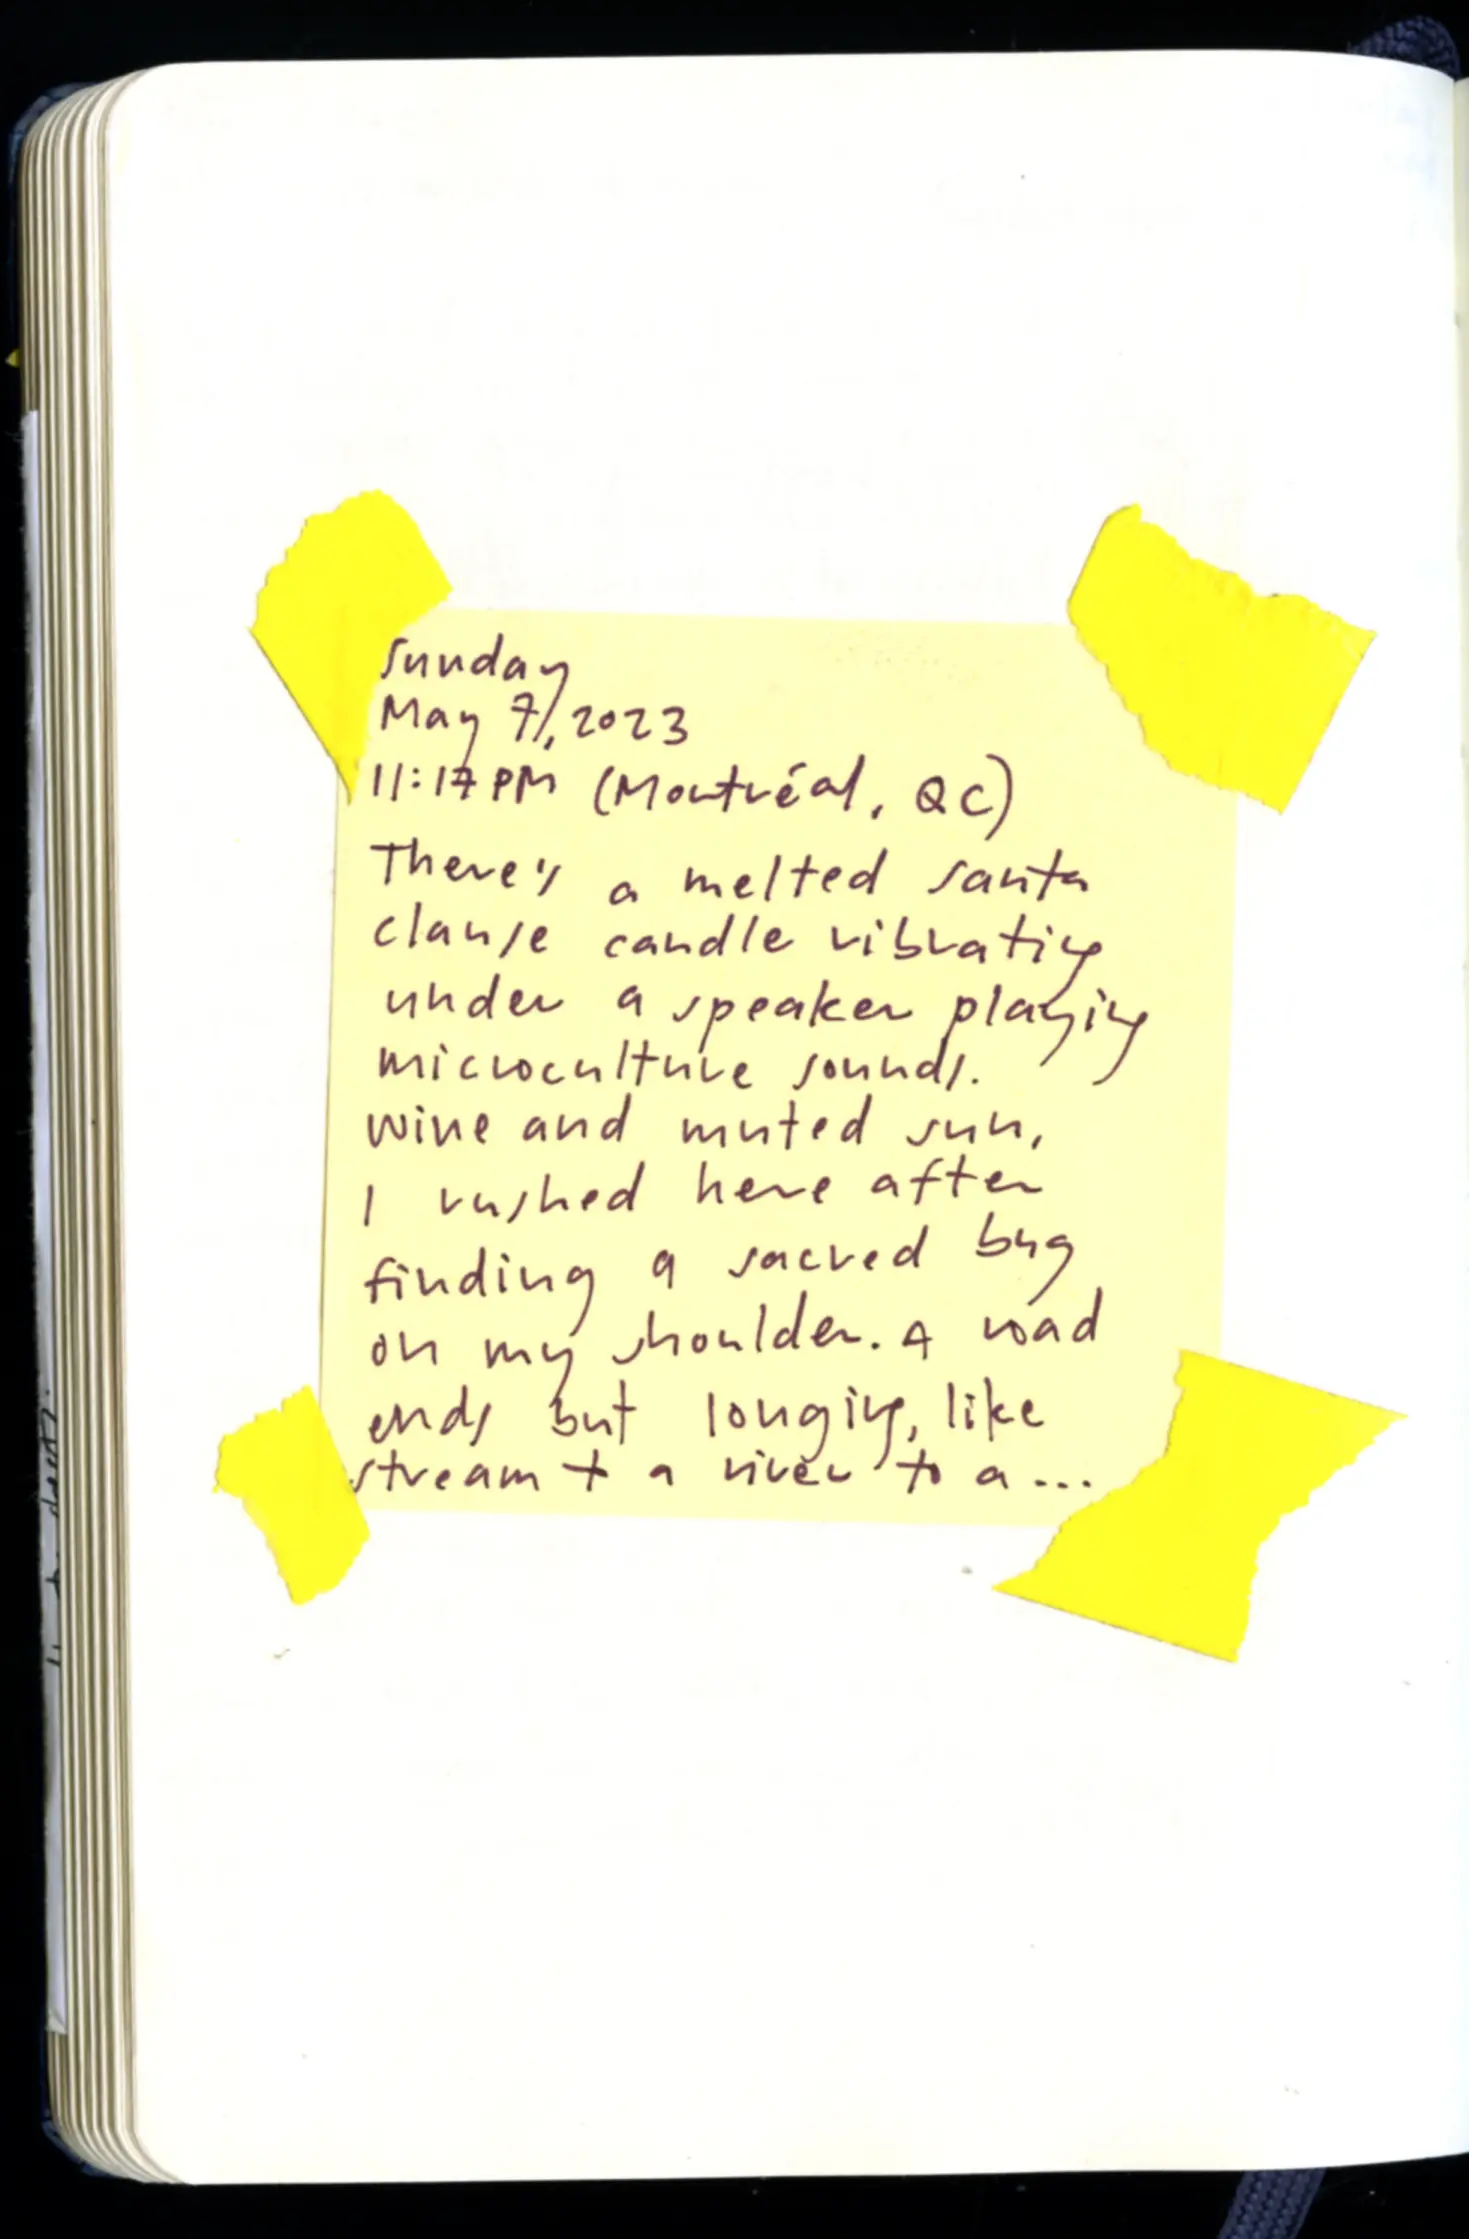 Sunday
May 7, 2023
11:17 PM (Montréal, QC)
There's a melted santa
clause candle vibrating
under a speaker playing
microculture sounds.
Wine and muted sun,
I rushed here after
finding a sacred bug
on my shoulder. A road
ends but longing, like
stream to a river to a...